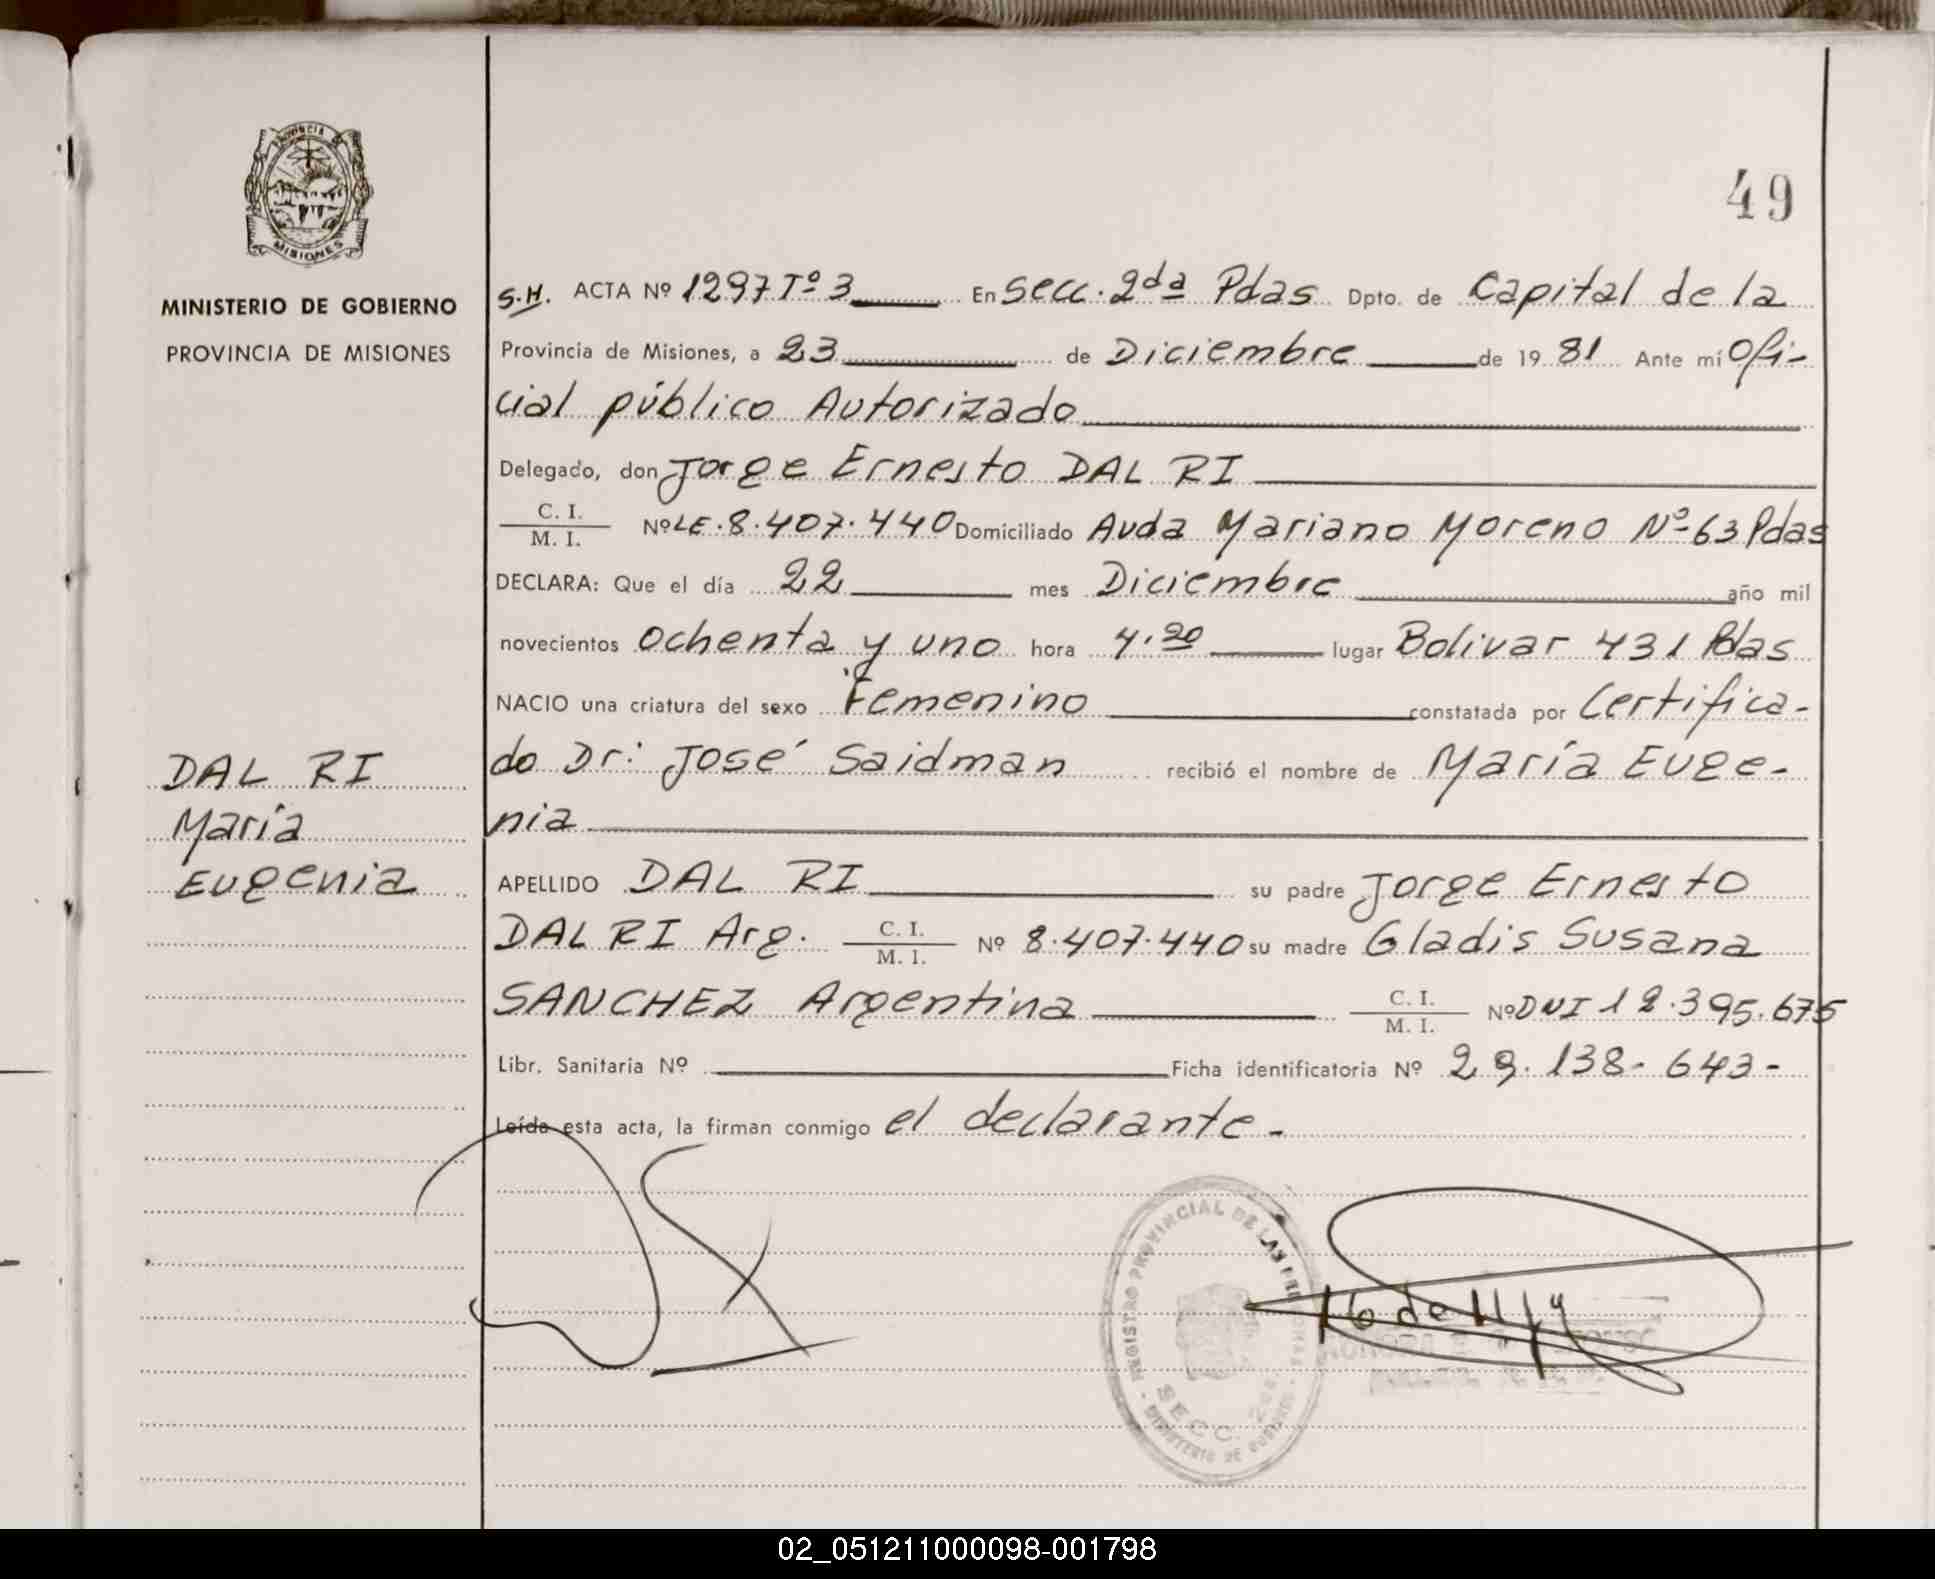 PROVINCIA DE
MISIONES
MINISTERIO DE GOBIERNO
PROVINCIA DE MISIONES
DAL RI
María
Eugenia
49
S.H. ACTA Nº 1297 Tº 3 En Secc. 2da Pdas Dpto. de Capital de la
Provincia de Misiones, a 23 de Diciembre de 1981 Ante mí Ofi-
cial público Autorizado
Delegado, don Jorge Ernesto DAL RI
C. I.
M. I. Nº LE. 8.407.440 Domiciliado Avda Mariano Moreno Nº 63 Pdas
DECLARA: Que el día 22 mes Diciembre año mil
novecientos ochenta y uno hora 4.20 lugar Bolivar 431 Pdas
NACIO una criatura del sexo Femenino constatada por Certifica-
do Dr: José Saidman recibió el nombre de María Euge-
nia
APELLIDO DAL RI su padre Jorge Ernesto
DAL RI Arg. C. I.
M. I. Nº 8.407.440 su madre Gladis Susana
SANCHEZ Argentina C. I.
M. I. Nº DNI 12.395.675
Libr. Sanitaria Nº Ficha identificatoria Nº 29.138-643-
Leída esta acta, la firman conmigo el declarante-
REGISTRO PROVINCIAL DE LAS PERSONAS
SECC. 2da.
MINISTERIO DE GOBIERNO
02_051211000098-001798